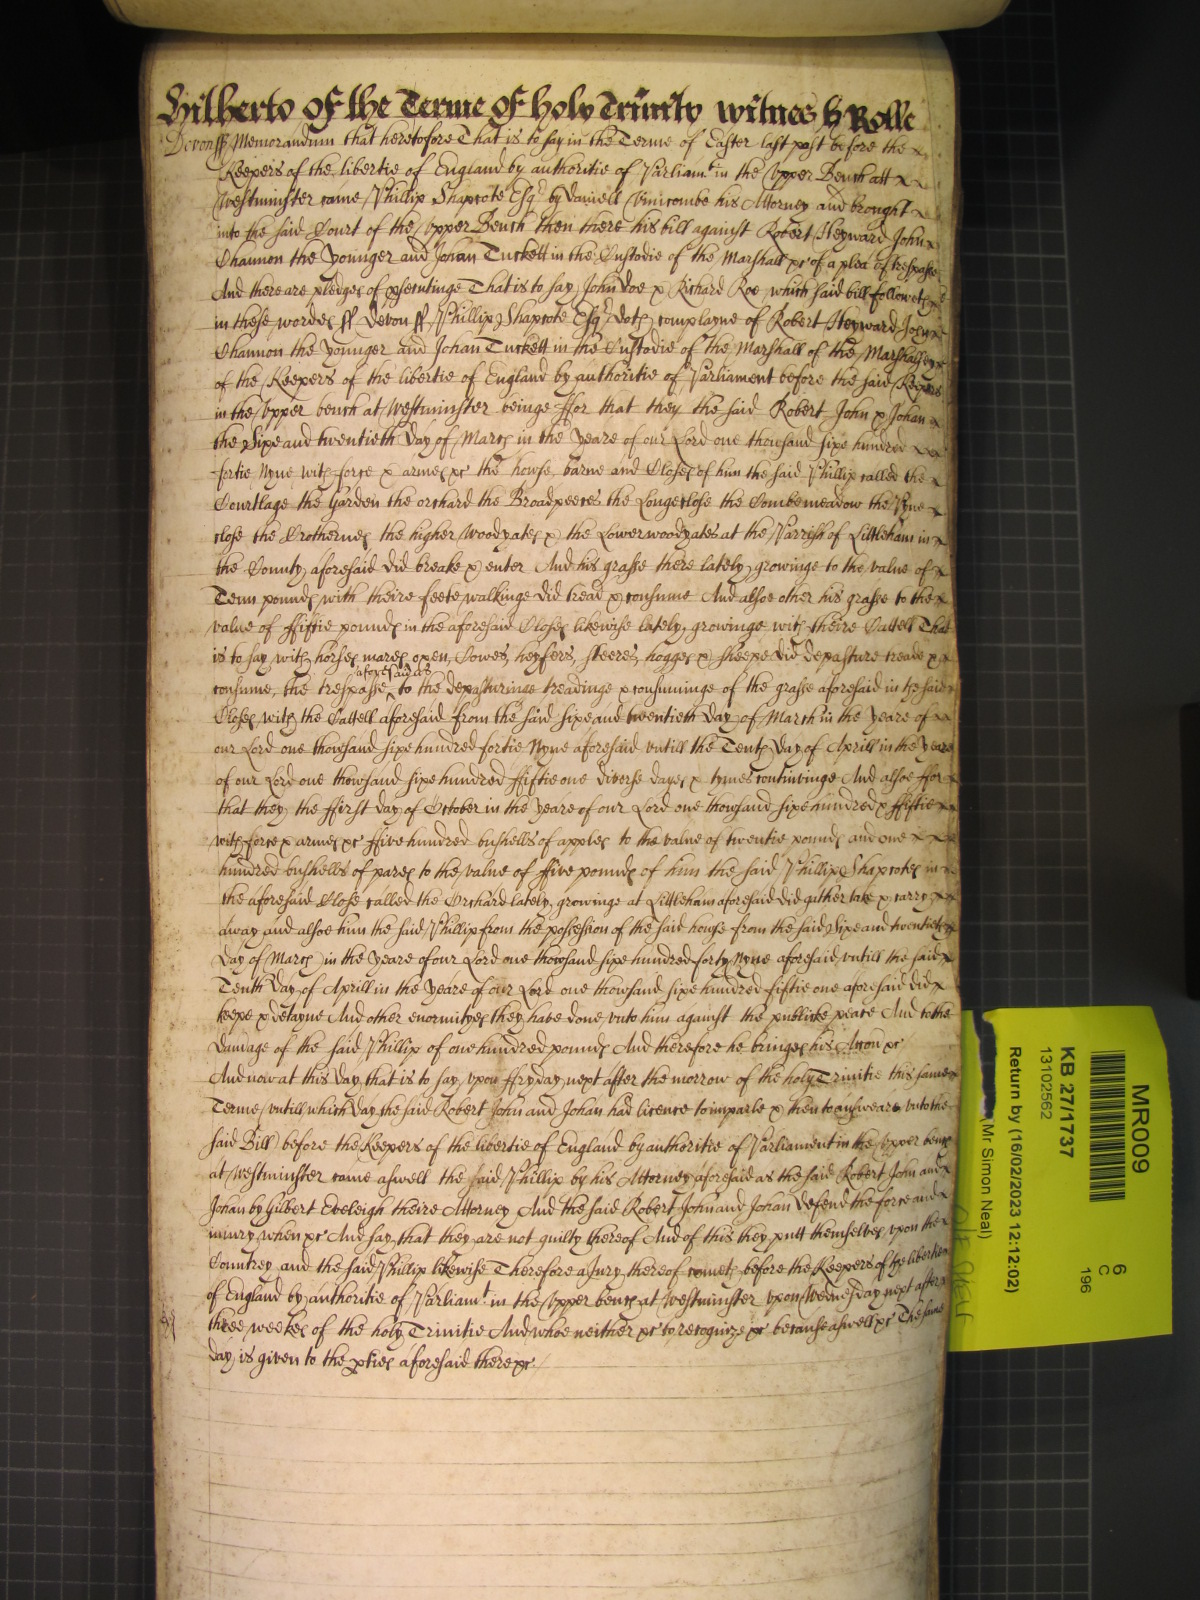 Hilberto Of the Terme Of holy Trinity witnes H Rolle
Devon ss Memorandum that heretofore That is to say in the Terme of Easter last past before the
Keepers of the libertie of England by authoritie of Parliamt in the Upper Bench att
Westminster came Phillip Shapcote Esqr by Daniell Vinicombe his Attorney and brought
into the said Court of the Upper Bench then there his bill against Robert Heyward John
Channon the Younger and Johan Tuckett in the Custodie of the Marshall &c of a plea of trespasse
And there are pledges of psecutinge That is to say John Doe & Richard Roe which said bill followeth
in these wordes ss Devon ss Phillip Shapcote Esqr doth complayne of Robert Heyward John
Channon the Younger and Johan Tuckett in the Custodie of the Marshall of the Marshallsye
of the Keepers of the libertie of England by authoritie of Parliament before the said Keepers
in the Upper bench at Westminster beinge ffor that they the said Robert John & Johan
the Sixe and twentieth Day of March in the yeare of our Lord one thowsand sixe hundred
fortie Nyne with force & armes &c the howse barne and Closes of him the said Phillip called the
Courtlage the Garden the orchard the Broadpeeces the Longeclose the Combemeadow the Nyne
close the Crothernes the higher Woodyates & the Lowerwoodyates at the Parrish of Littleham in
the County aforesaid did breake & enter And his grasse there lately growinge to the value of
Tenn pounds with theire feete walkinge did tread & consume And alsoe other his grasse to the
value of ffiftie pounds in the aforesaid Closes likewise lately growinge with theire Cattell That
is to say with horses mares oxen Cowes heyfers, steeres, hogges & sheepe did depasture treade &
aforesaid as
consume, the trespasse to the depasturinge treadinge & consuminge of the grasse aforesaid in the said
Closes with the Cattell aforesaid from the said sixe and twentieth day of March in the yeare of
our Lord one thowsand sixe hundred fortie Nyne aforesaid untill the Tenth Day of Aprill in the yeare
of our Lord one thowsand sixe hundred ffiftie one diverse dayes & tymes continuinge And alsoe ffor
that they the ffirst day of October in the yeare of our Lord one thowsand sixe hundred & ffiftie
with force & armes &c ffive hundred bushells of apples to the value of twentie pounds and one
hundred bushells of pares to the value of ffive pounds of him the said Phillip Shapcotes in
the aforesaid Close called the Orchard lately growinge at Littleham aforesaid did gather take & carry
away and alsoe him the said Phillip from the possession of the said howse from the said Sixe and twentieth
day of March in the yeare of our Lord one thowsand sixe hundred forty Nyne aforesaid untill the said
Tenth Day of Aprill in the yeare of our Lord one thowsand sixe hundred fiftie one aforesaid did
keepe & detayne And other enormityes they have done unto him against the publicke peace And to the
damage of the said Phillip of one hundred pounds And therefore he bringes his Accon &c
And now at this day that is to say upon ffryday next after the morrow of the holy Trinitie this same
Terme untill which day the said Robert John and Johan had licence to imparle & then to answeare unto the
said Bill before the Keepers of the libertie of England by authoritie of Parliament in the Upper bench
at Westminster came aswell the said Phillip by his Attorney aforesaid as the said Robert John and
Johan by Gilbert Eveleigh theire Attorney And the said Robert John and Johan defend the force and
iniury when &c And say that they are not guilty thereof And of this they putt themselves upon the
Countrey and the said Phillip likewise Therefore a Jury thereof cometh before the Keepers of the libertie
of England by authoritie of Parliamt in the Upper bench at Westminster upon Wednesday next after
three weekes of the holy Trinitie And whoe neither &c to recognize &c because aswell &c The same
day is given to the pties aforesaid there &c
MR009
KB 27/1737
13102562
Return by (16/02/2023 12:12:02)
(Mr Simon Neal)
6
C
196